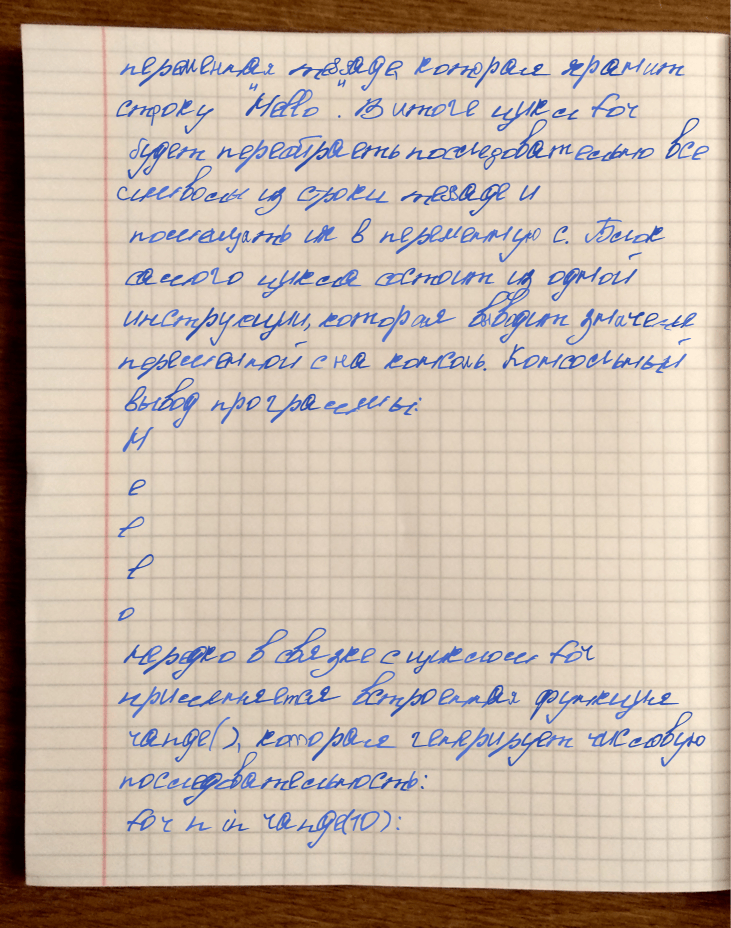 переменная message, которая хранит
строку "Hello". В итоге цикл for
будет перебирать последовательно все
символы из строки message и
помещать их в переменную c. Блок
самого цикла состоит из одной
инструкции, которая выводит значение
переменной с на консоль. Консольный
вывод программы:
H
e
l
l
o
нередко в связке с циклом for
применяется встроенная функция
range(), которая генерирует числовую
последовательность:
for n in range(10):